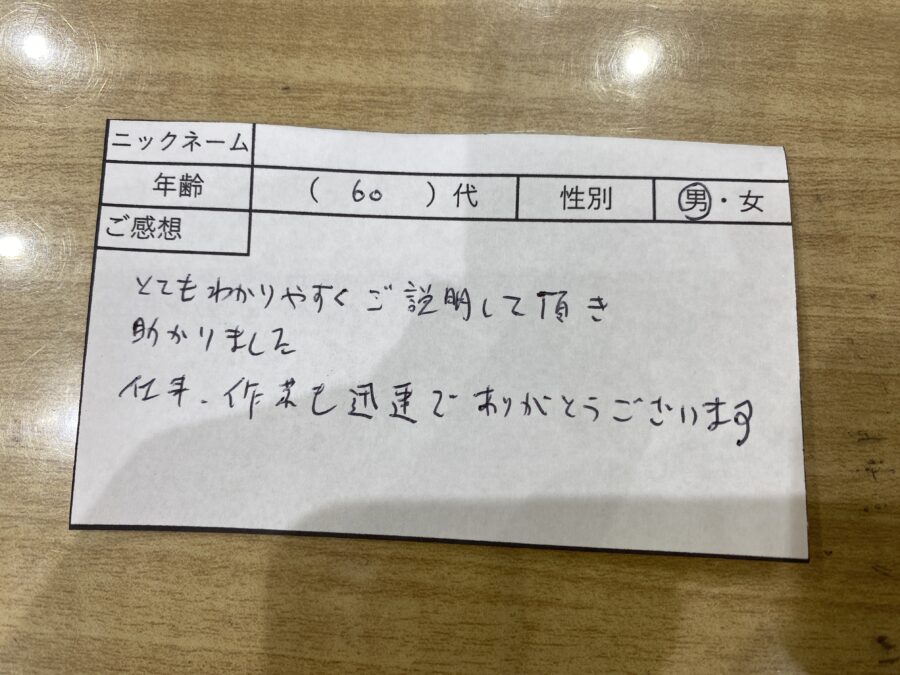 ニックネーム
年齢 ( 60 )代 性別 男・女
ご感想
とてもわかりやすくご説明して頂き
助かりました
仕事、作業も迅速でありがとうございます